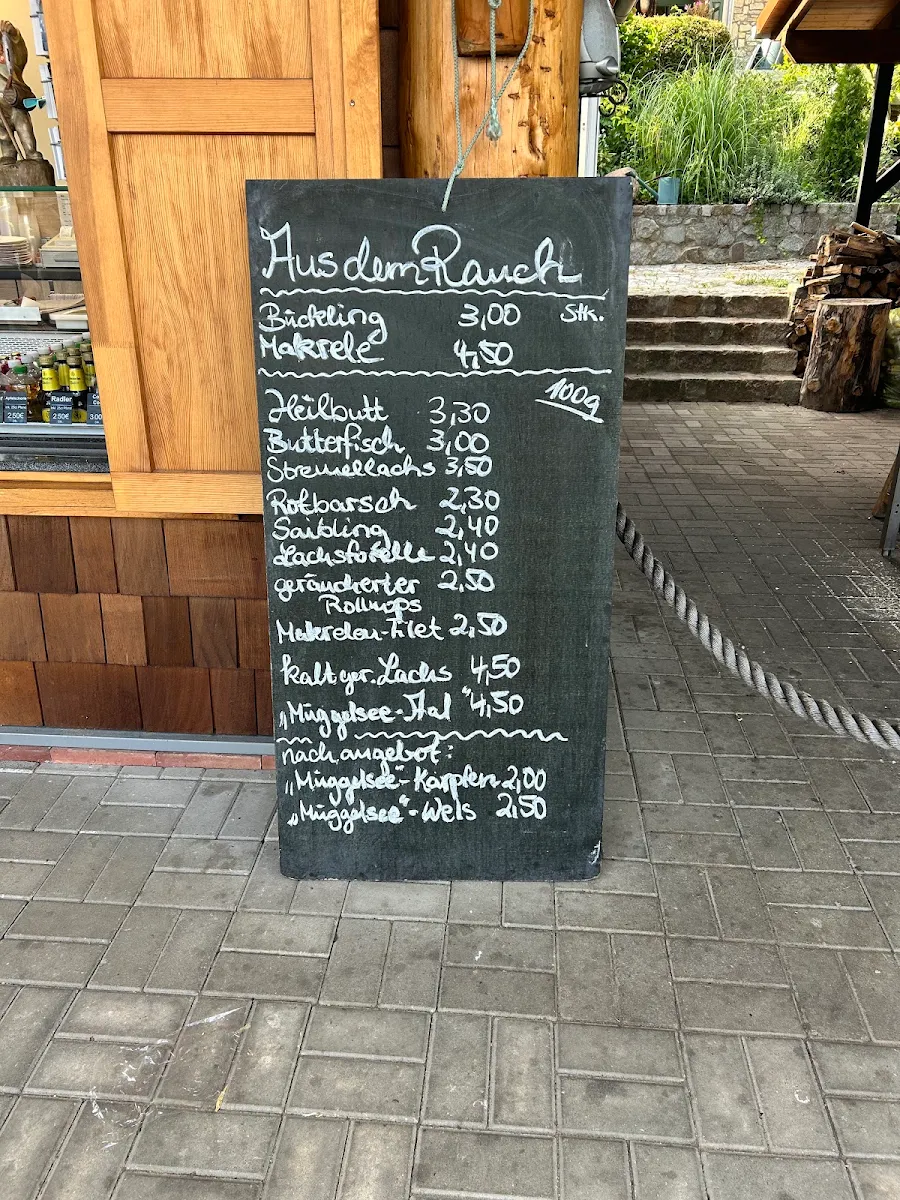 Aus dem Rauch
Bückling 3,00 Stk.
Makrele 4,50
100g
Heilbutt 3,30
Butterfisch 3,00
Stremellachs 3,50
Rotbarsch 2,30
Saibling 2,40
Lachsforelle 2,40
geräucherter 2,50
Rollmops
Makrelen-Filet 2,50
kalt ger. Lachs 4,50
„Müggelsee-Aal" 4,50
nach angebot:
„Müggelsee"-Karpfen 2,00
„Müggelsee"-Wels 2,50
Apfelschorle Radler
2.50€ 2.50€ 3.00